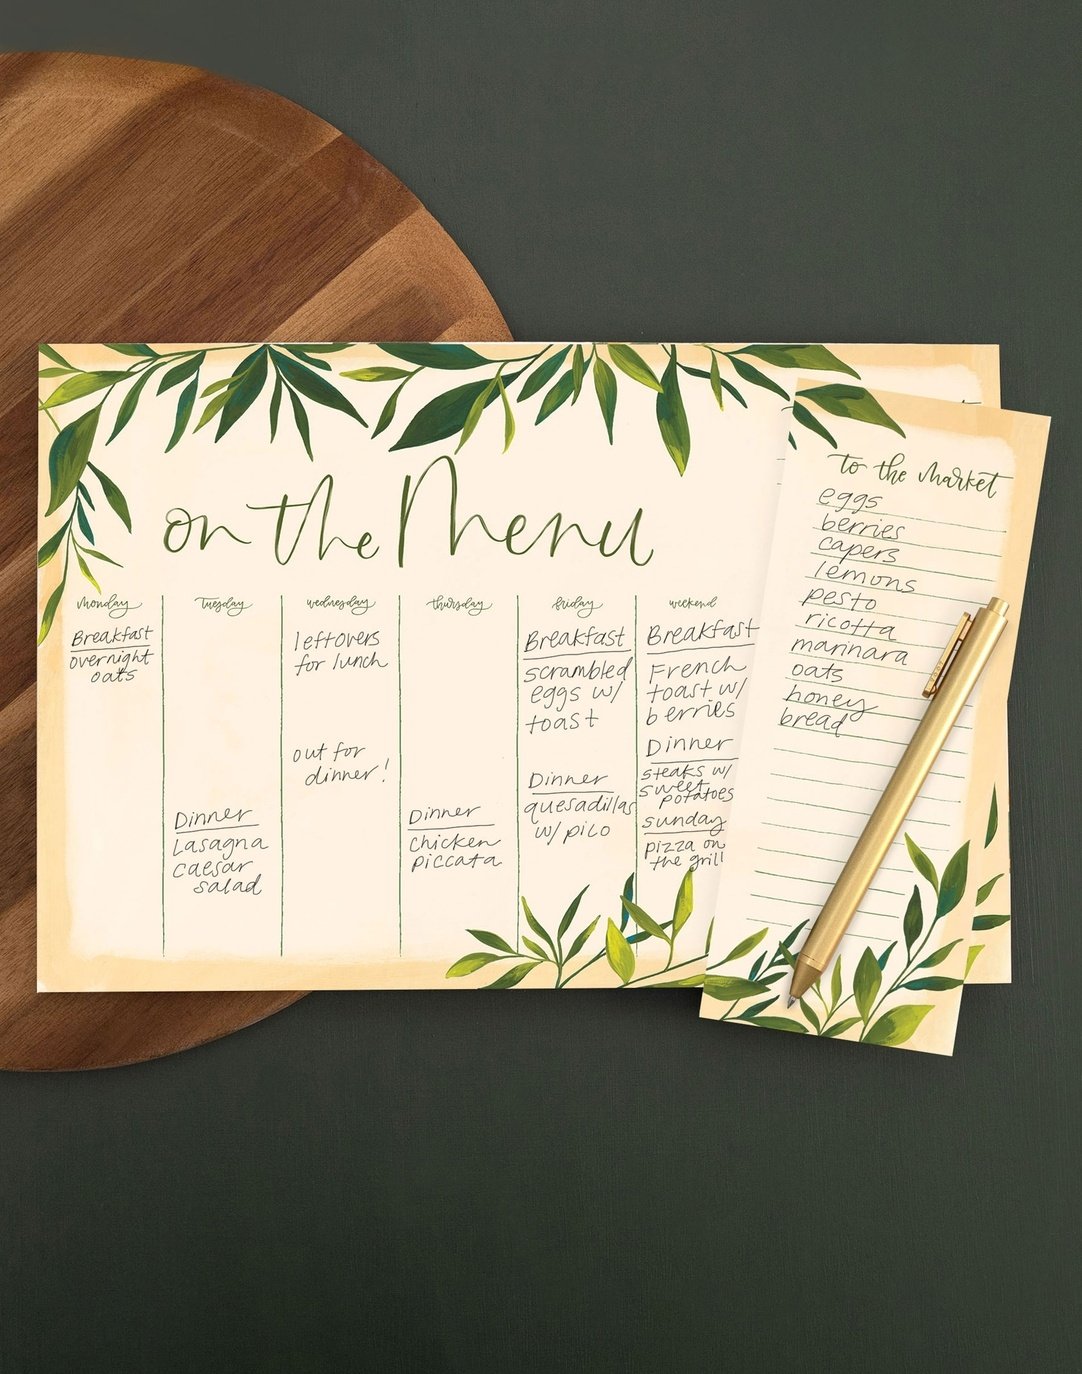 on the Menu
monday
Breakfast
overnight
oats
tuesday
Dinner
Lasagna
caesar
salad
wednesday
leftovers
for lunch
out for
dinner!
thursday
Dinner
chicken
piccata
friday
Breakfast
scrambled
eggs w/
toast
Dinner
quesadillas
w/ pico
weekend
Breakfast
French
toast w/
berries
Dinner
steaks w/
sweet
potatoes
sunday
pizza on
the grill
to the Market
eggs
berries
capers
lemons
pesto
ricotta
marinara
oats
honey
bread